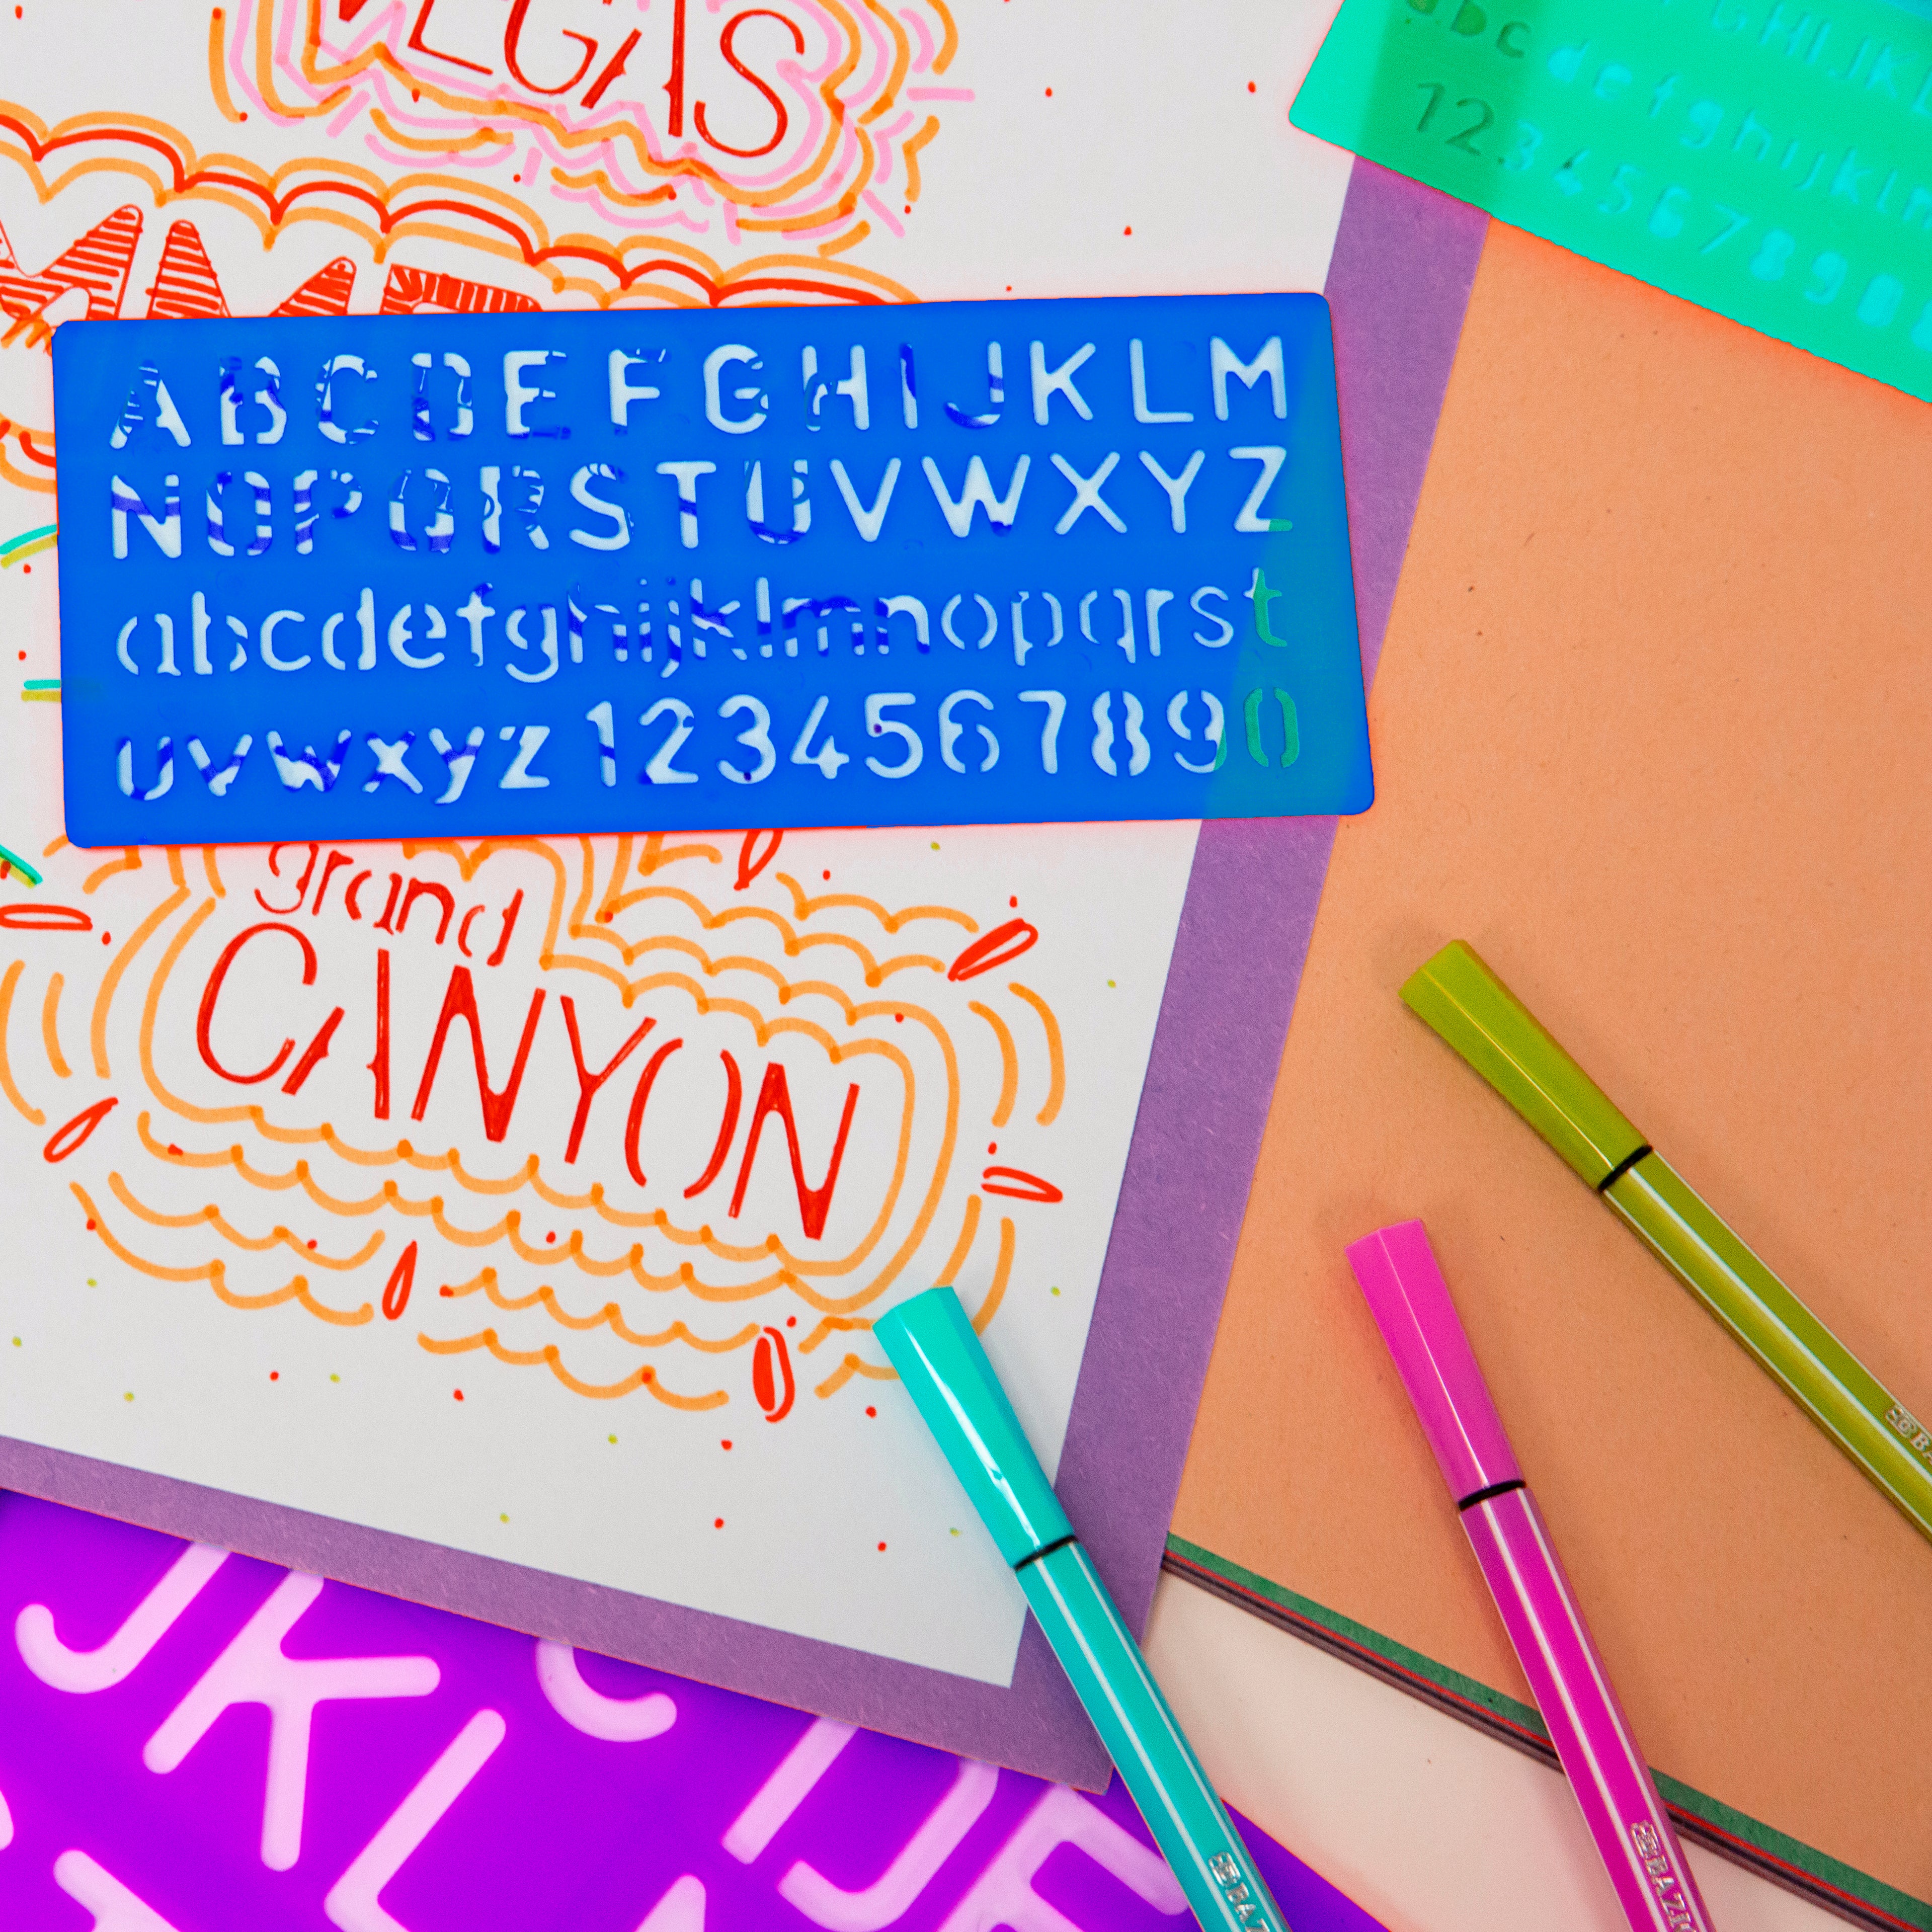 VEGAS
abc defghijkl
1234567890
ABCDEFGHIJKLM
NOPQRSTUVWXYZ
abcdefghijklmnopqrst
uvwxyz 1234567890
grand
CANYON
JKL